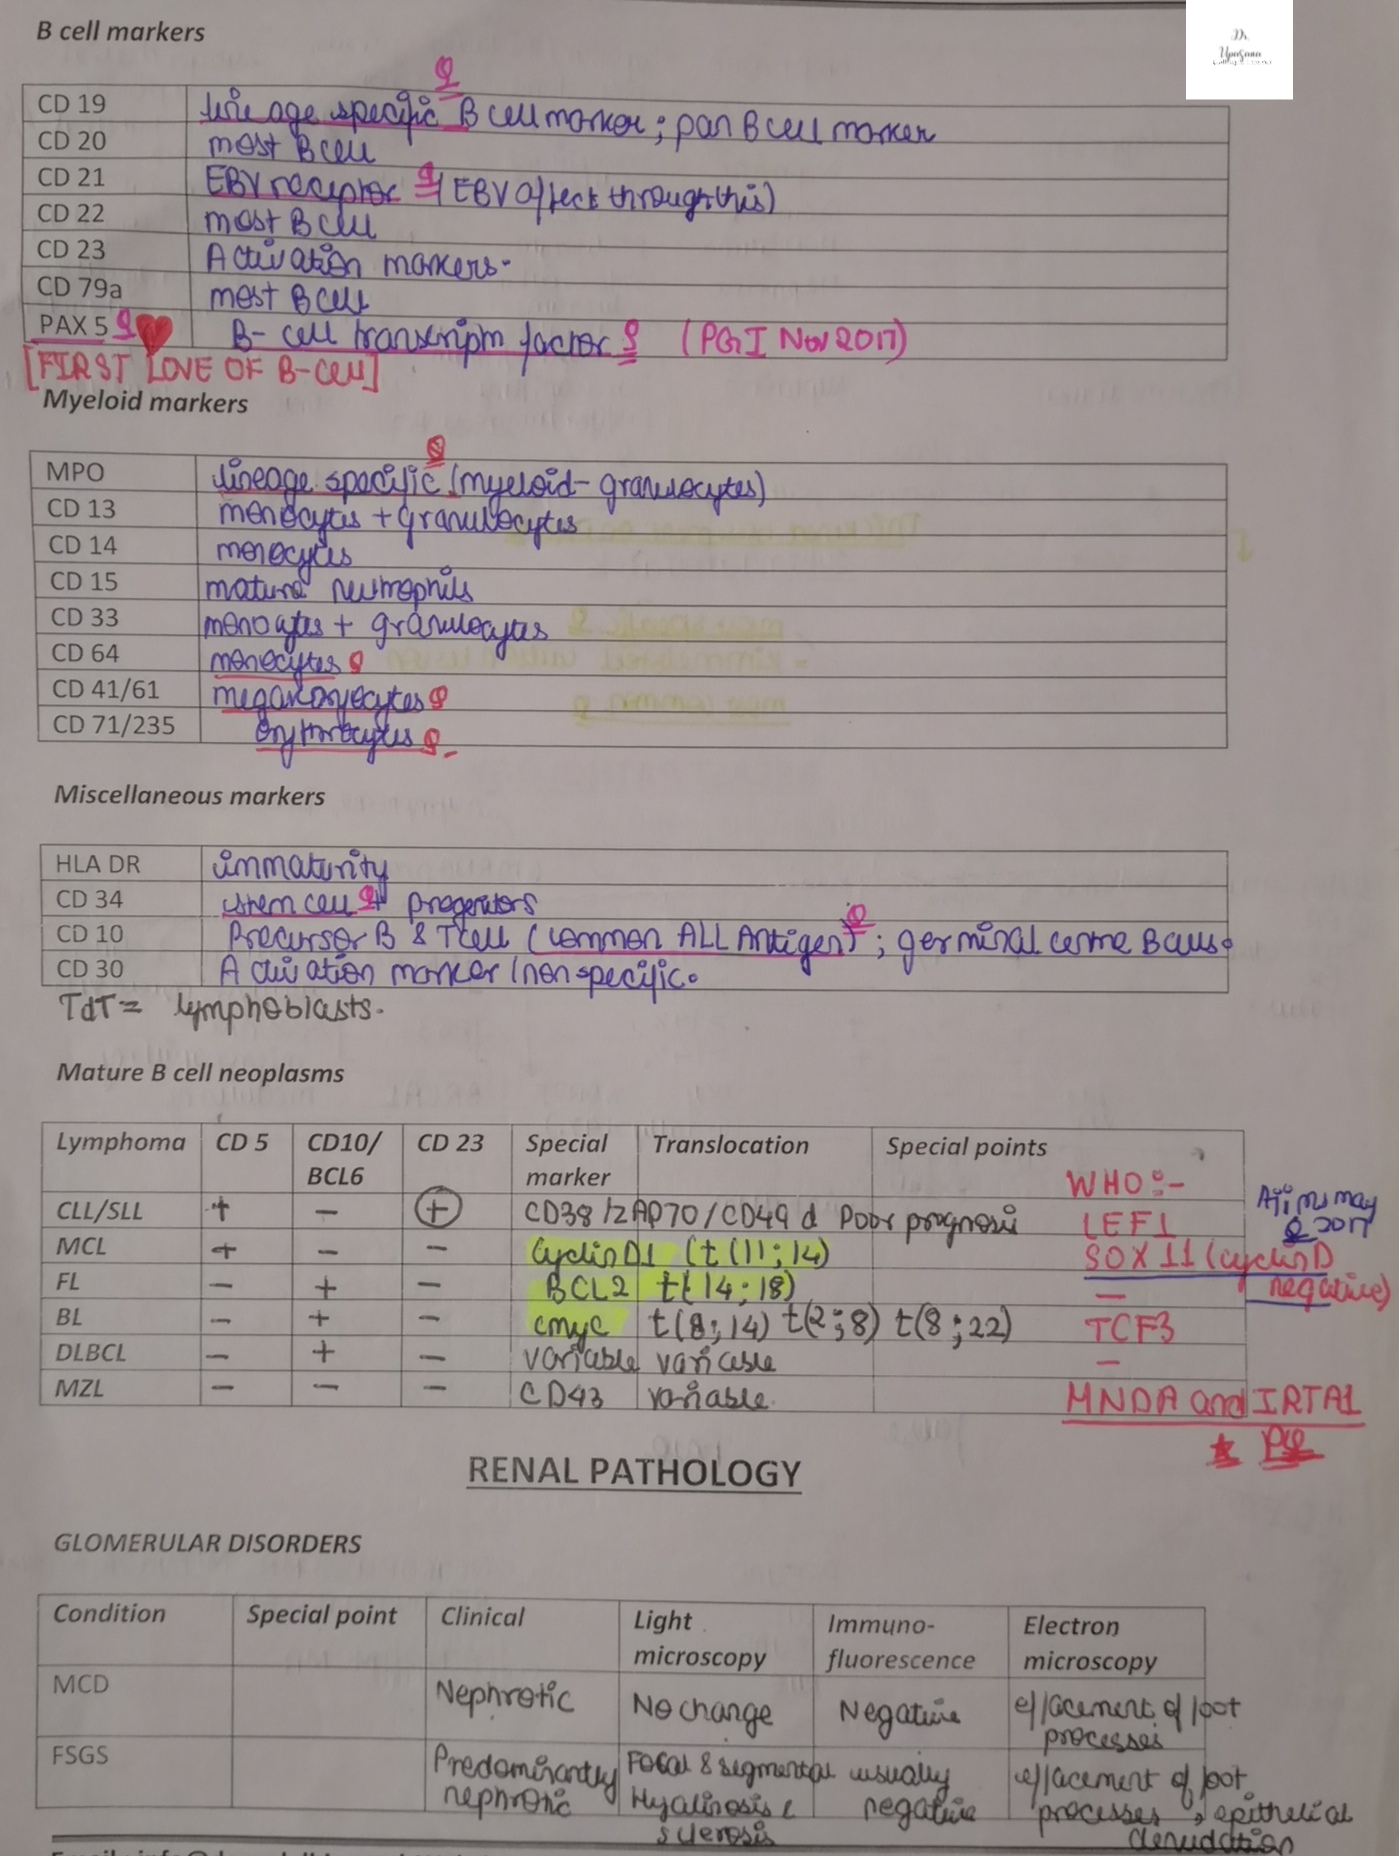 Dr.
Upasana
B cell markers
Q
CD 19 lineage specific B cell marker; pan B cell marker
CD 20 most B cell
CD 21 EBV receptor Q (EBV affect through this)
CD 22 most B cell
CD 23 Activation markers.
CD 79a most B cell
PAX 5 Q B- cell transcriptn factor Q (PGI Nov 2017)
[FIRST LOVE OF B-Cell]
Myeloid markers
Q
MPO lineage specific (myeloid- granulocytes)
CD 13 monocytes + granulocytes
CD 14 monocytes
CD 15 mature neutrophils
CD 33 monocytes + granulocytes
CD 64 monocytes Q
CD 41/61 megakaryocytes Q
CD 71/235 Erythrocytes Q
Miscellaneous markers
HLA DR immaturity
CD 34 stem cell Q + progenitors
CD 10 Precursor B & T cell (common ALL Antigen) Q ; germinal centre B cells.
CD 30 Activation marker / non specific.
TdT = lymphoblasts.
Mature B cell neoplasms
Lymphoma CD 5 CD10/ BCL6 CD 23 Special marker Translocation Special points
WHO :-
CLL/SLL + - + CD38/ZAP70/CD49d Poor prognosis LEF1 AIIMS may Q 2017
MCL + - - Cyclin D1 (t(11;14) SOX 11 (cyclin D negative)
FL - + - BCL2 t(14;18) -
BL - + - cmyc t(8;14) t(2;8) t(8;22) TCF3
DLBCL - + - variable variable -
MZL - - - CD43 variable. MNDA and IRTA1
RENAL PATHOLOGY
GLOMERULAR DISORDERS
Condition Special point Clinical Light microscopy Immuno-fluorescence Electron microscopy
MCD Nephrotic No change Negative effacement of foot processes
FSGS Predominantly nephrotic Focal & segmental Hyalinosis & sclerosis usually negative effacement of foot processes, epithelial denudation